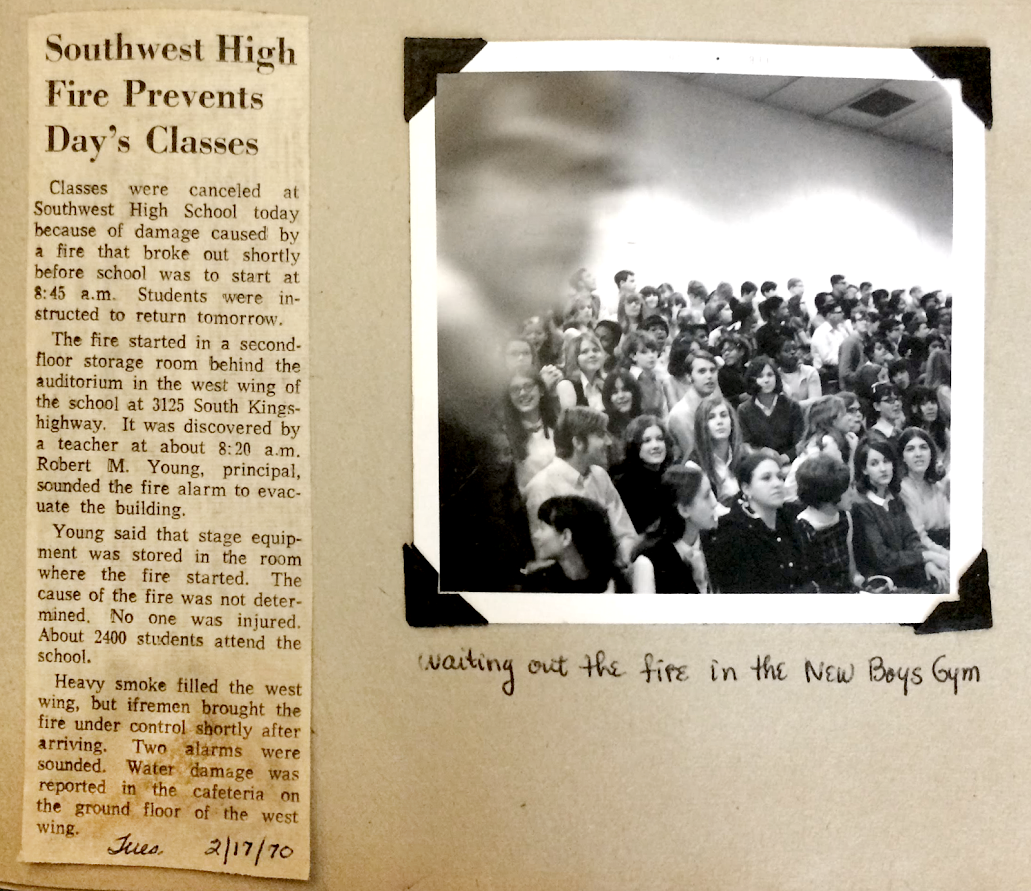 Southwest High
Fire Prevents
Day's Classes
Classes were canceled at
Southwest High School today
because of damage caused by
a fire that broke out shortly
before school was to start at
8:45 a.m. Students were in-
structed to return tomorrow.
The fire started in a second-
floor storage room behind the
auditorium in the west wing of
the school at 3125 South Kings-
highway. It was discovered by
a teacher at about 8:20 a.m.
Robert M. Young, principal,
sounded the fire alarm to evac-
uate the building.
Young said that stage equip-
ment was stored in the room
where the fire started. The
cause of the fire was not deter-
mined. No one was injured.
About 2400 students attend the
school.
Heavy smoke filled the west
wing, but ifremen brought the
fire under control shortly after
arriving. Two alarms were
sounded. Water damage was
reported in the cafeteria on
the ground floor of the west
wing.
Tues. 2/17/70
waiting out the fire in the New Boys Gym